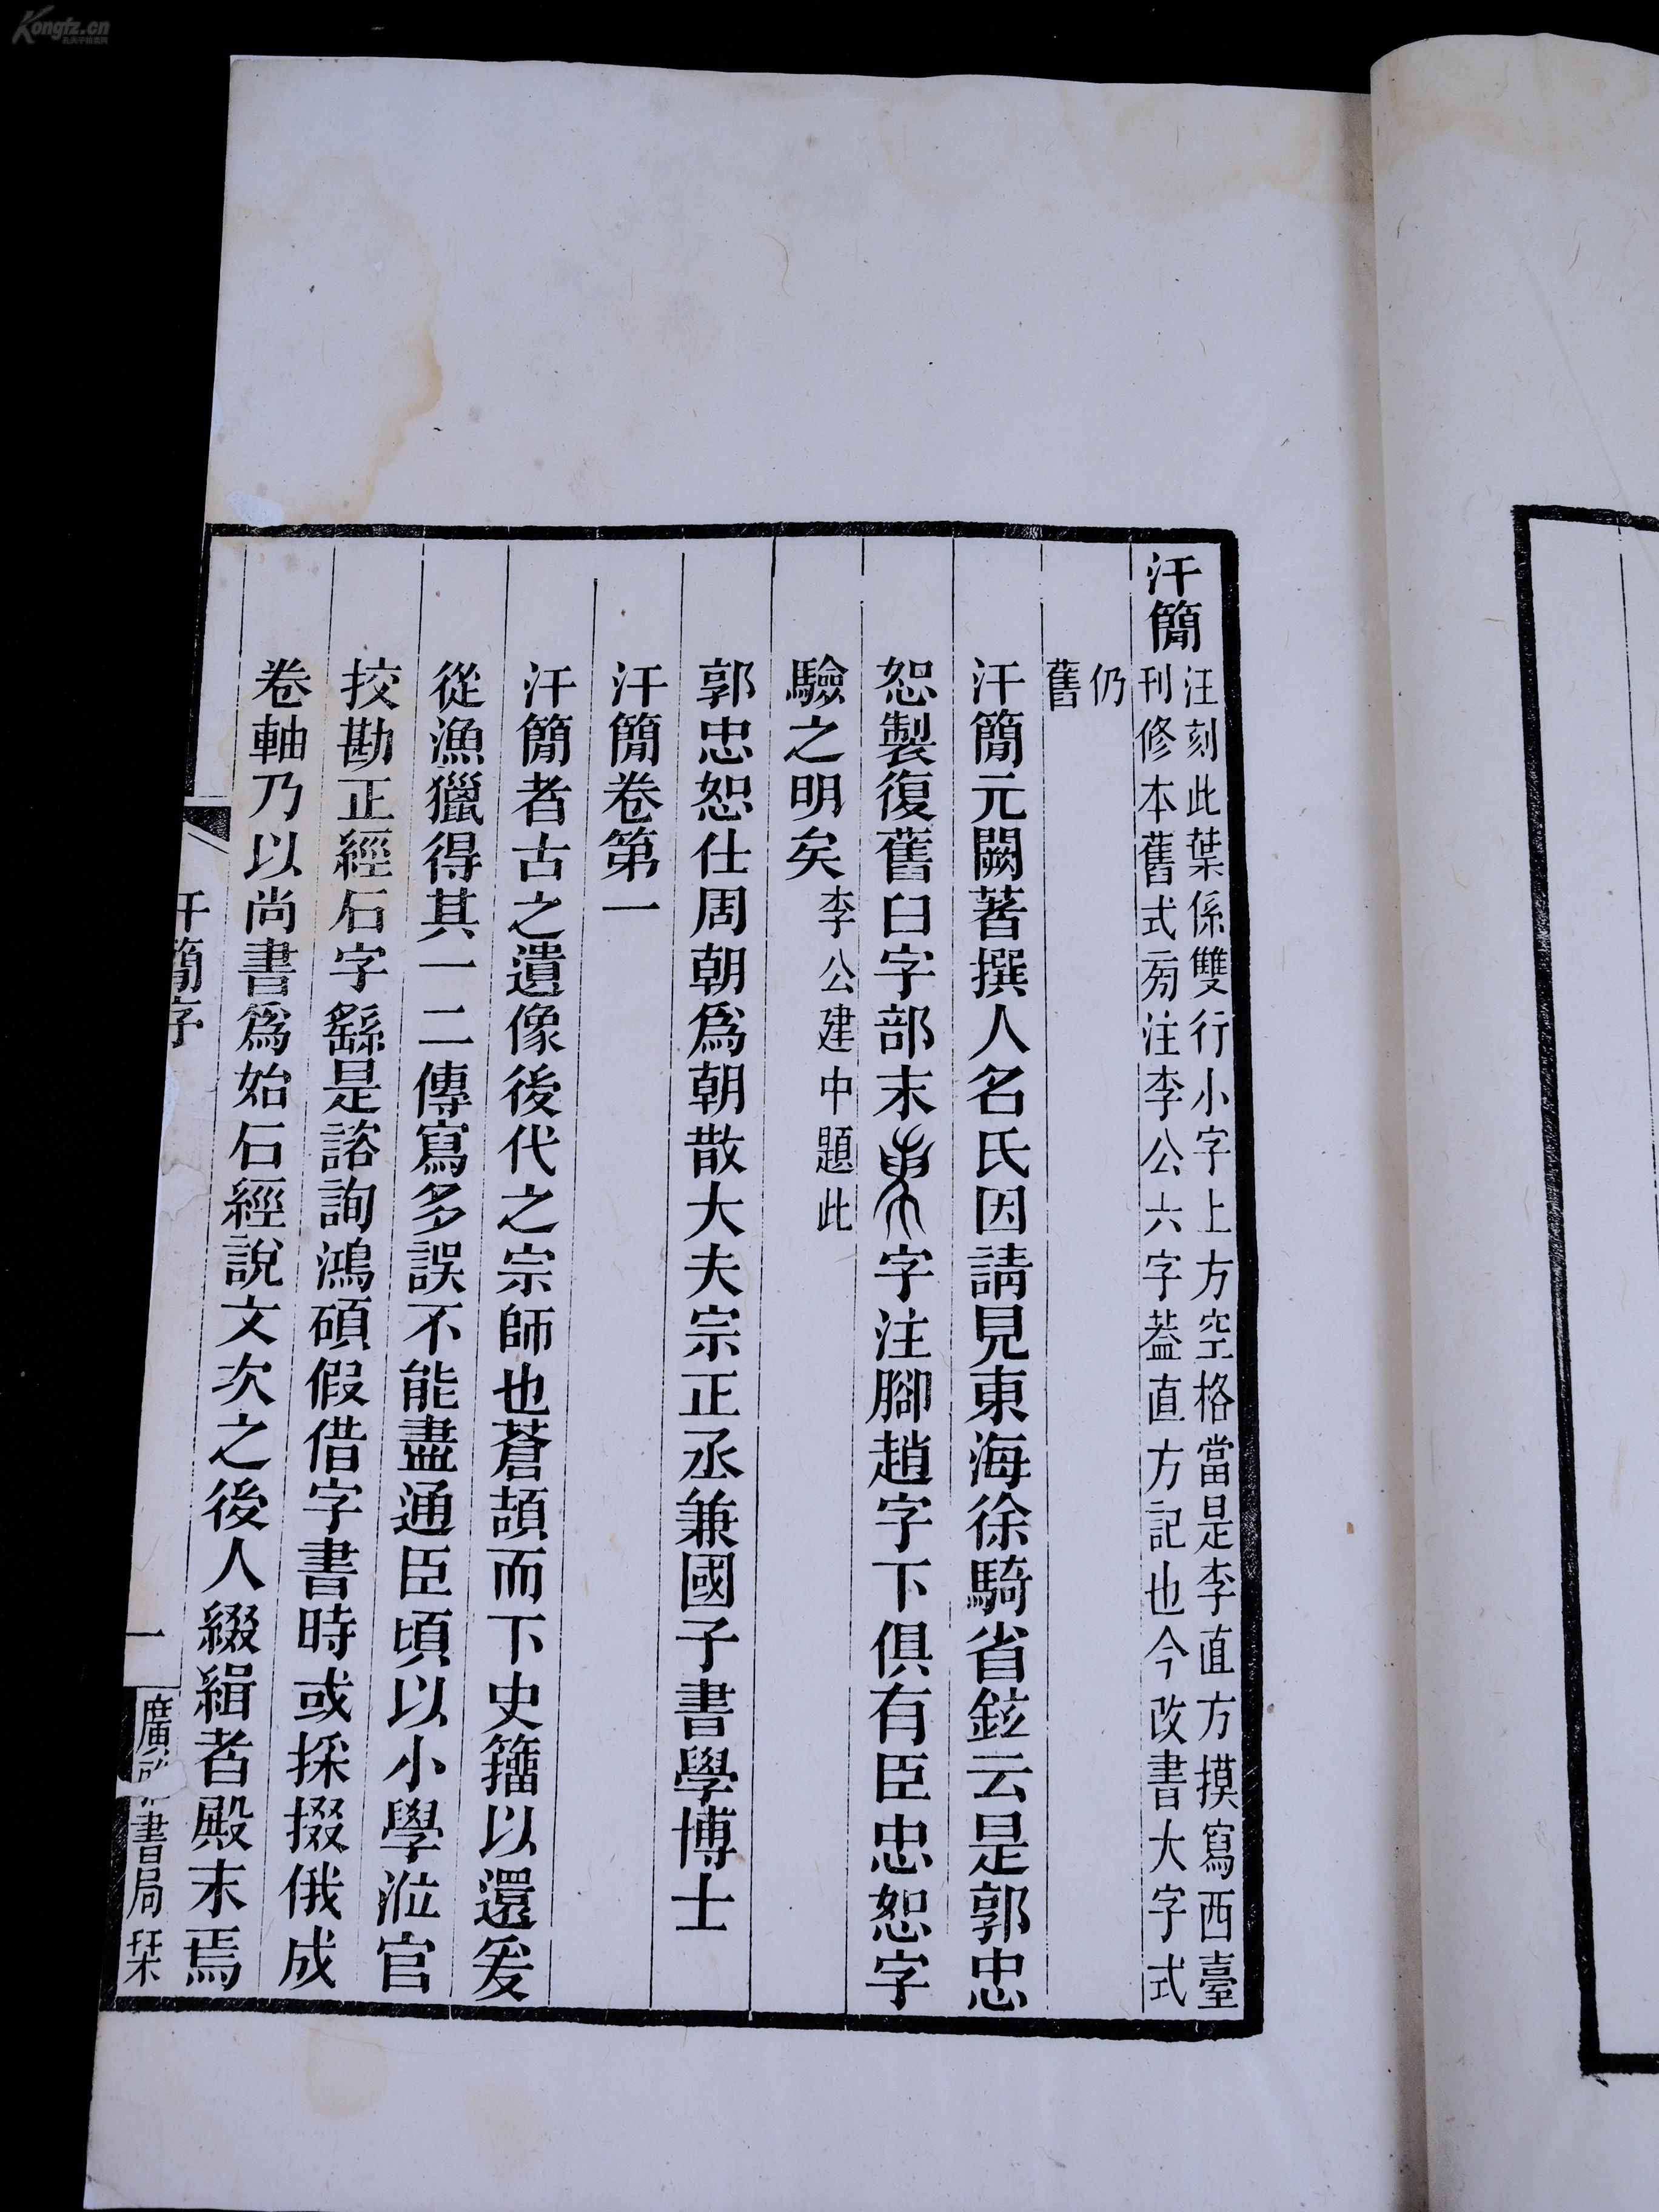 汗簡 汪刻此葉係雙行小字上方空格當是李直方摸寫西臺
刊修本舊式㫄注李公六字葢直方記也今改書大字式
仍
舊
汗簡元闕著撰人名氏因請見東海徐騎省鉉云是郭忠
恕製復舊臼字部末字注腳趙字下俱有臣忠恕字
驗之明矣 李公建中題此
郭忠恕仕周朝爲朝散大夫宗正丞兼國子書學博士
汗簡卷第一
汗簡者古之遺像後代之宗師也蒼頡而下史籒以還爰
從漁獵得其一二傳寫多誤不能盡通臣頃以小學涖官
挍勘正經石字繇是諮詢鴻碩假借字書時或採掇俄成
卷軸乃以尚書爲始石經說文次之後人綴緝者殿末焉
汗簡序
一
廣 書局栞
Kongfz.cn